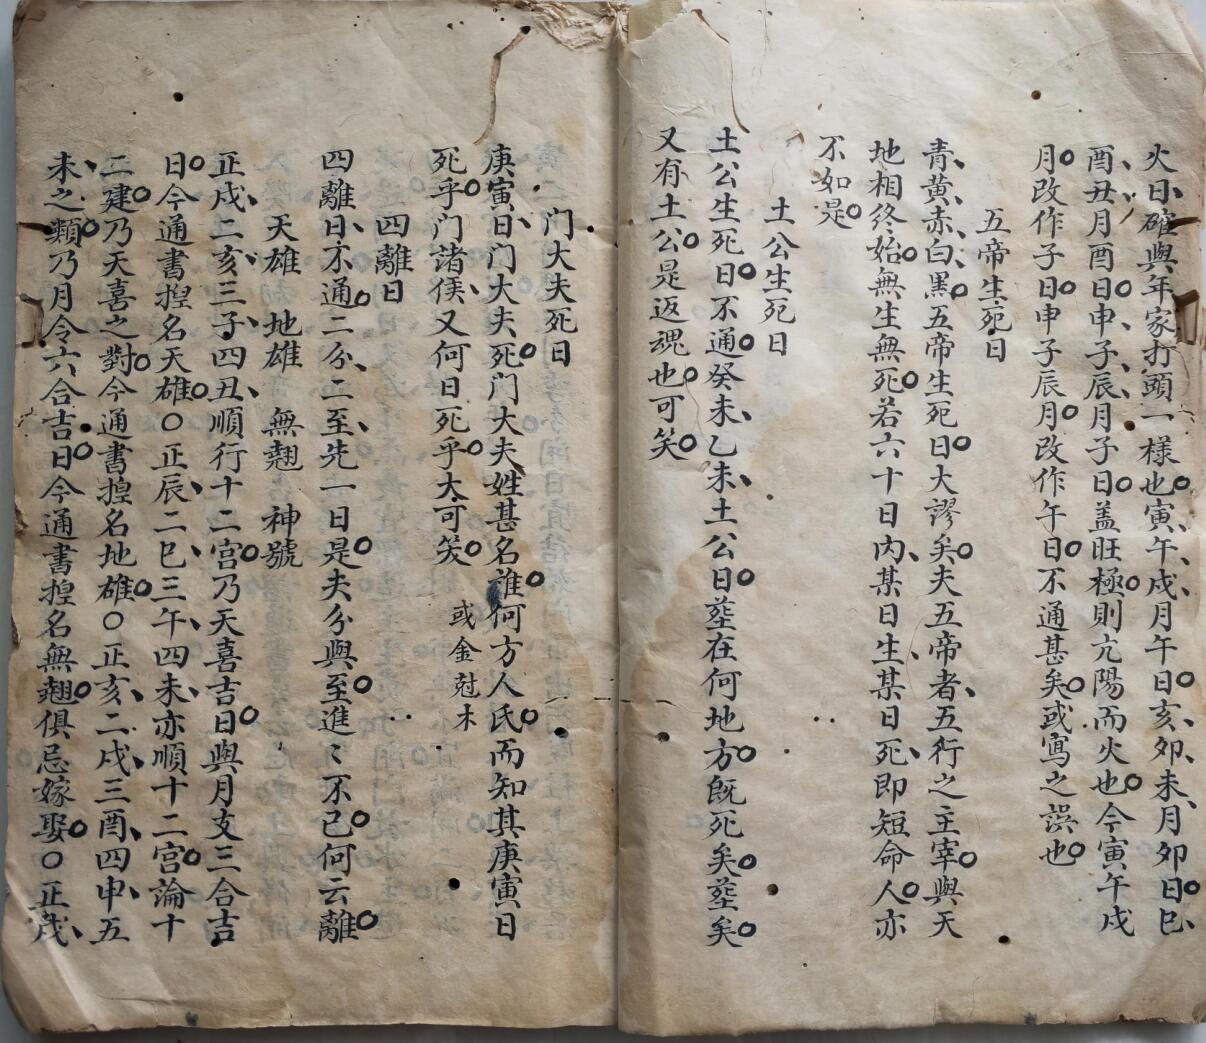 火日確與年家打頭一樣也寅午戌月午日亥卯未月卯日巳
酉丑月酉日申子辰月子日盖旺極則亢陽而火也今寅午戌
月改作子日申子辰月改作午日不通甚矣或寫之誤也
五帝生死日
青黃赤白黑五帝生死日大謬矣夫五帝者五行之主宰與天
地相終始無生無死若六十日内某日生某日死即短命人亦
不如是
土公生死日
土公生死日不通癸未乙未土公日塟在何地方既死矣塟矣
又有土公是返魂也可笑
门大夫死日
庚寅日门大夫死门大夫姓甚名誰何方人氏而知其庚寅日
死乎门諸侯又何日死乎大可笑
或金尅木
四離日
四離日不通二分二至先一日是夫分與至進〻不已何云離
天雄 地雄 無翹 神號
正戌二亥三子四丑順行十二宮乃天喜吉日與月支三合吉
日今通書揑名天雄〇正辰二巳三午四未亦順十二宮論十
二建乃天喜之對今通書揑名地雄〇正亥二戌三酉四申五
未之類乃月令六合吉日今通書揑名無翹俱忌嫁娶〇正戌